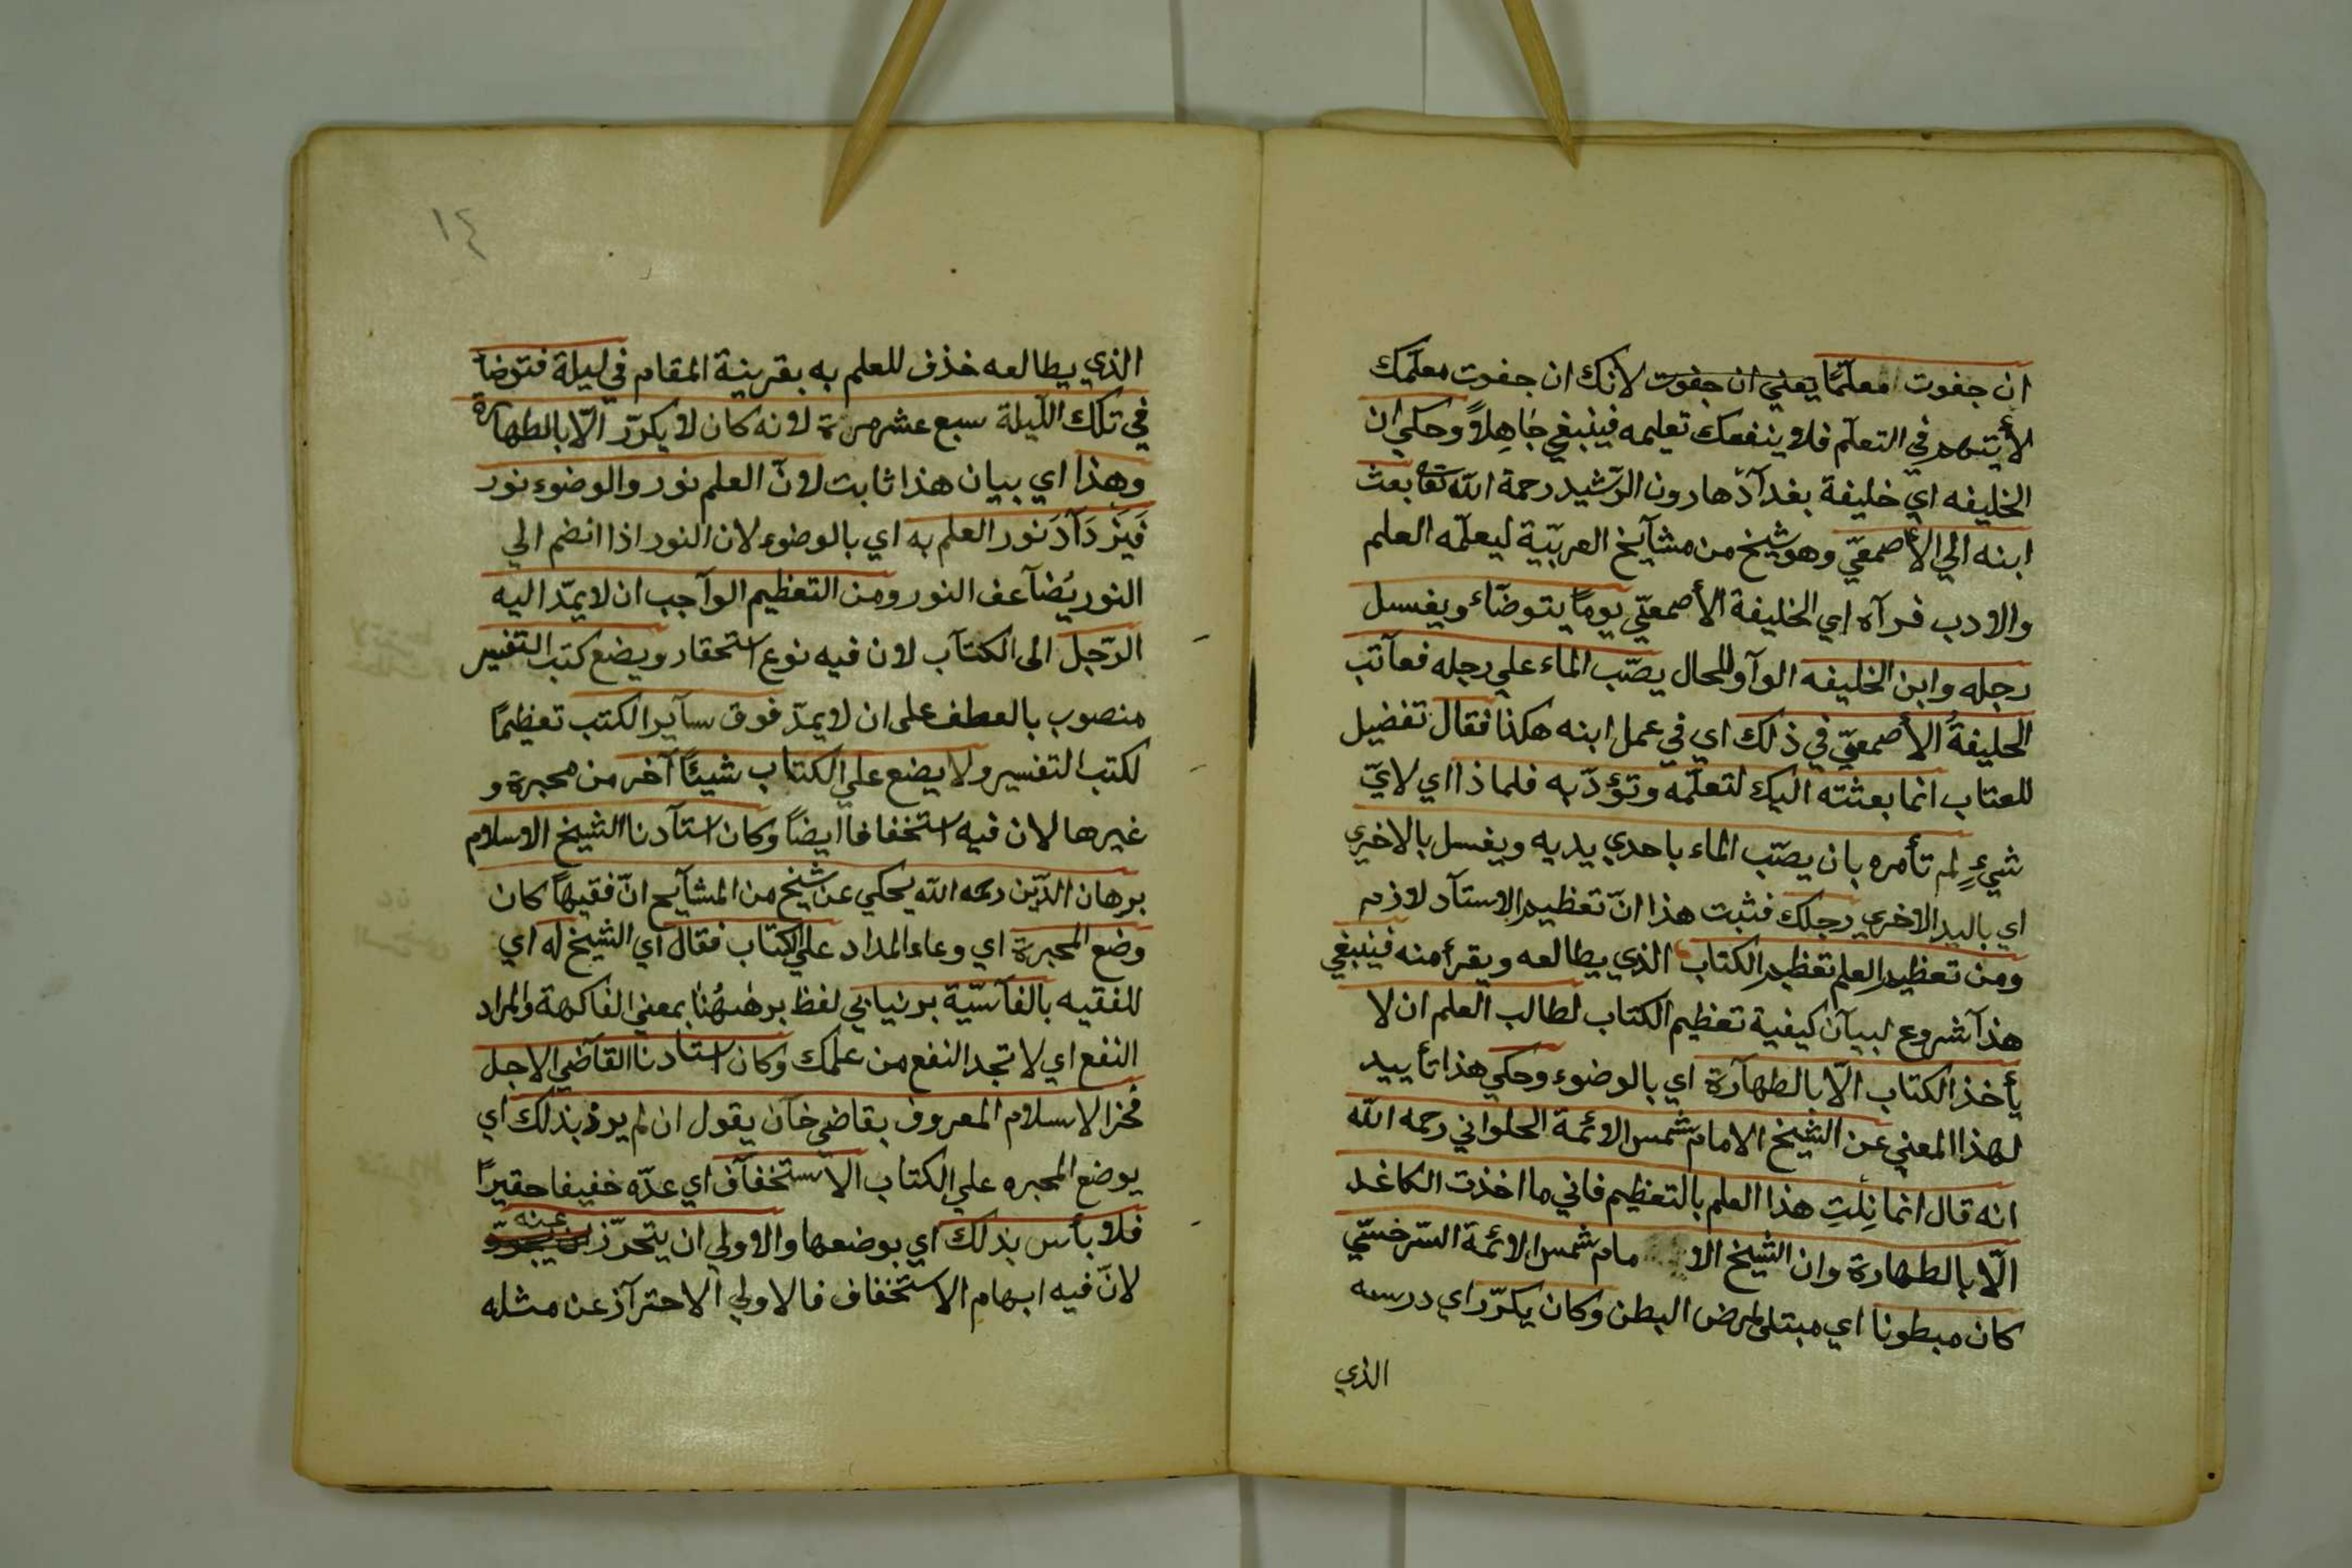 ان جفوت معلّمًا يعني ان جفوت لأنك ان جفوت معلّمك
لا يتهم في التعلّم فلا ينفعك تعليمه فينبغي جَاهِلاً وحكي ان
الخليفه اي خليفة بغدآدَ هارون الرّشيد رحمة الله تعا بعث
ابنه الي الأصمعيّ وهو شيخ من مشآيخ العربيّة ليعلّمه العلم
والادب فرآه اي الخليفة الأصمعيّ يومًا يتوضّاء ويغسل
رجله وابن الخليفه الوآو للحال يصّب الماء علي رجله فعآتب
الخليفةُ الأصمعيّ في ذلك اي في عمل ابنه هكذا فقال تفضيل
للعتاب انما بعثته اليك لتعلّمه وتؤدّبه فلماذا اي لايّ
شيءٍ لم تأمره بان يصّب الماء باحدي يديه ويغسل بالاخري
اي باليد الاخري رجلك فثبت هذا انّ تعظيم الاستآد لازم
ومن تعظيم العلم تعظيم الكتاب الذي يطالعه ويقرأ منه فينبغي
هذآ شروع لبيآن كيفية تعظيم الكتاب لطالب العلم ان لا
يأخذ الكتاب الّا بالطهآرة اي بالوضوء وحكي هذا تأييد
لهذا المعني عن الشيخ الامام شمس الائمة الحلواني رحمه الله
انه قال انما نِلتِ هذا العلم بالتعظيم فاني ما اخذت الكاغد
الّا بالطهارة وان الشيخ الا مام شمس الائمة السّرخسّي
كان مبطونا اي مبتلي لمرض البطن وكان يكرّر اي درسه
الذي
١٤
الذي يطالعه خذف للعلم به بقرينة المقام في ليلة فتوضا
في تلك اللّيلة سبع عشر مرة لانه كان لا يكرّر الّا بالطهارة
وهذا اي بيان هذا ثابت لانّ العلم نور والوضوء نور
فَيَزْدَآدَ نور العلم به اي بالوضوء لان النور اذا انضم الي
النور يُضآعف النور ومن التعظيم الوآجب ان لا يمّد اليه
الرّجل الى الكتآب لان فيه نوع استحقار ويضع كتب التفسير
منصوب بالعطف على ان لا يمدّ فوق سآير الكتب تعظيمًا
لكتب التفسير ولا يضع علي الكتاب شيئًا آخر من محبرة و
غيرها لان فيه استخفافا ايضاً وكان استآدنا الشيخ الاسلام
برهان الدّين رحمه الله يحكي عن شيخ من المشآيخ انّ فقيهاً كان
وضع المحبرة اي وعاء المداد علي الكتاب فقال اي الشيخ له اي
للفقيه بالفآسّية برنيابي لفظ بر هٰهُنا بمعني الفاكهة والمراد
النفع اي لا تجد النفع من علمك وكان استادنا القآضي الاجل
فخر الاسلام المعروف بقاضي خآن يقول ان لم يرد بذلك اي
يوضع المحبره علي الكتاب الاستخفآف اي عدّه خفيفا حقيرًا
فلا بأس بذلك اي بوضعها والاولي ان يتحرّز عنه
لانّ فيه ابهام الاستخفاف فالاولي الاحترآز عن مثله